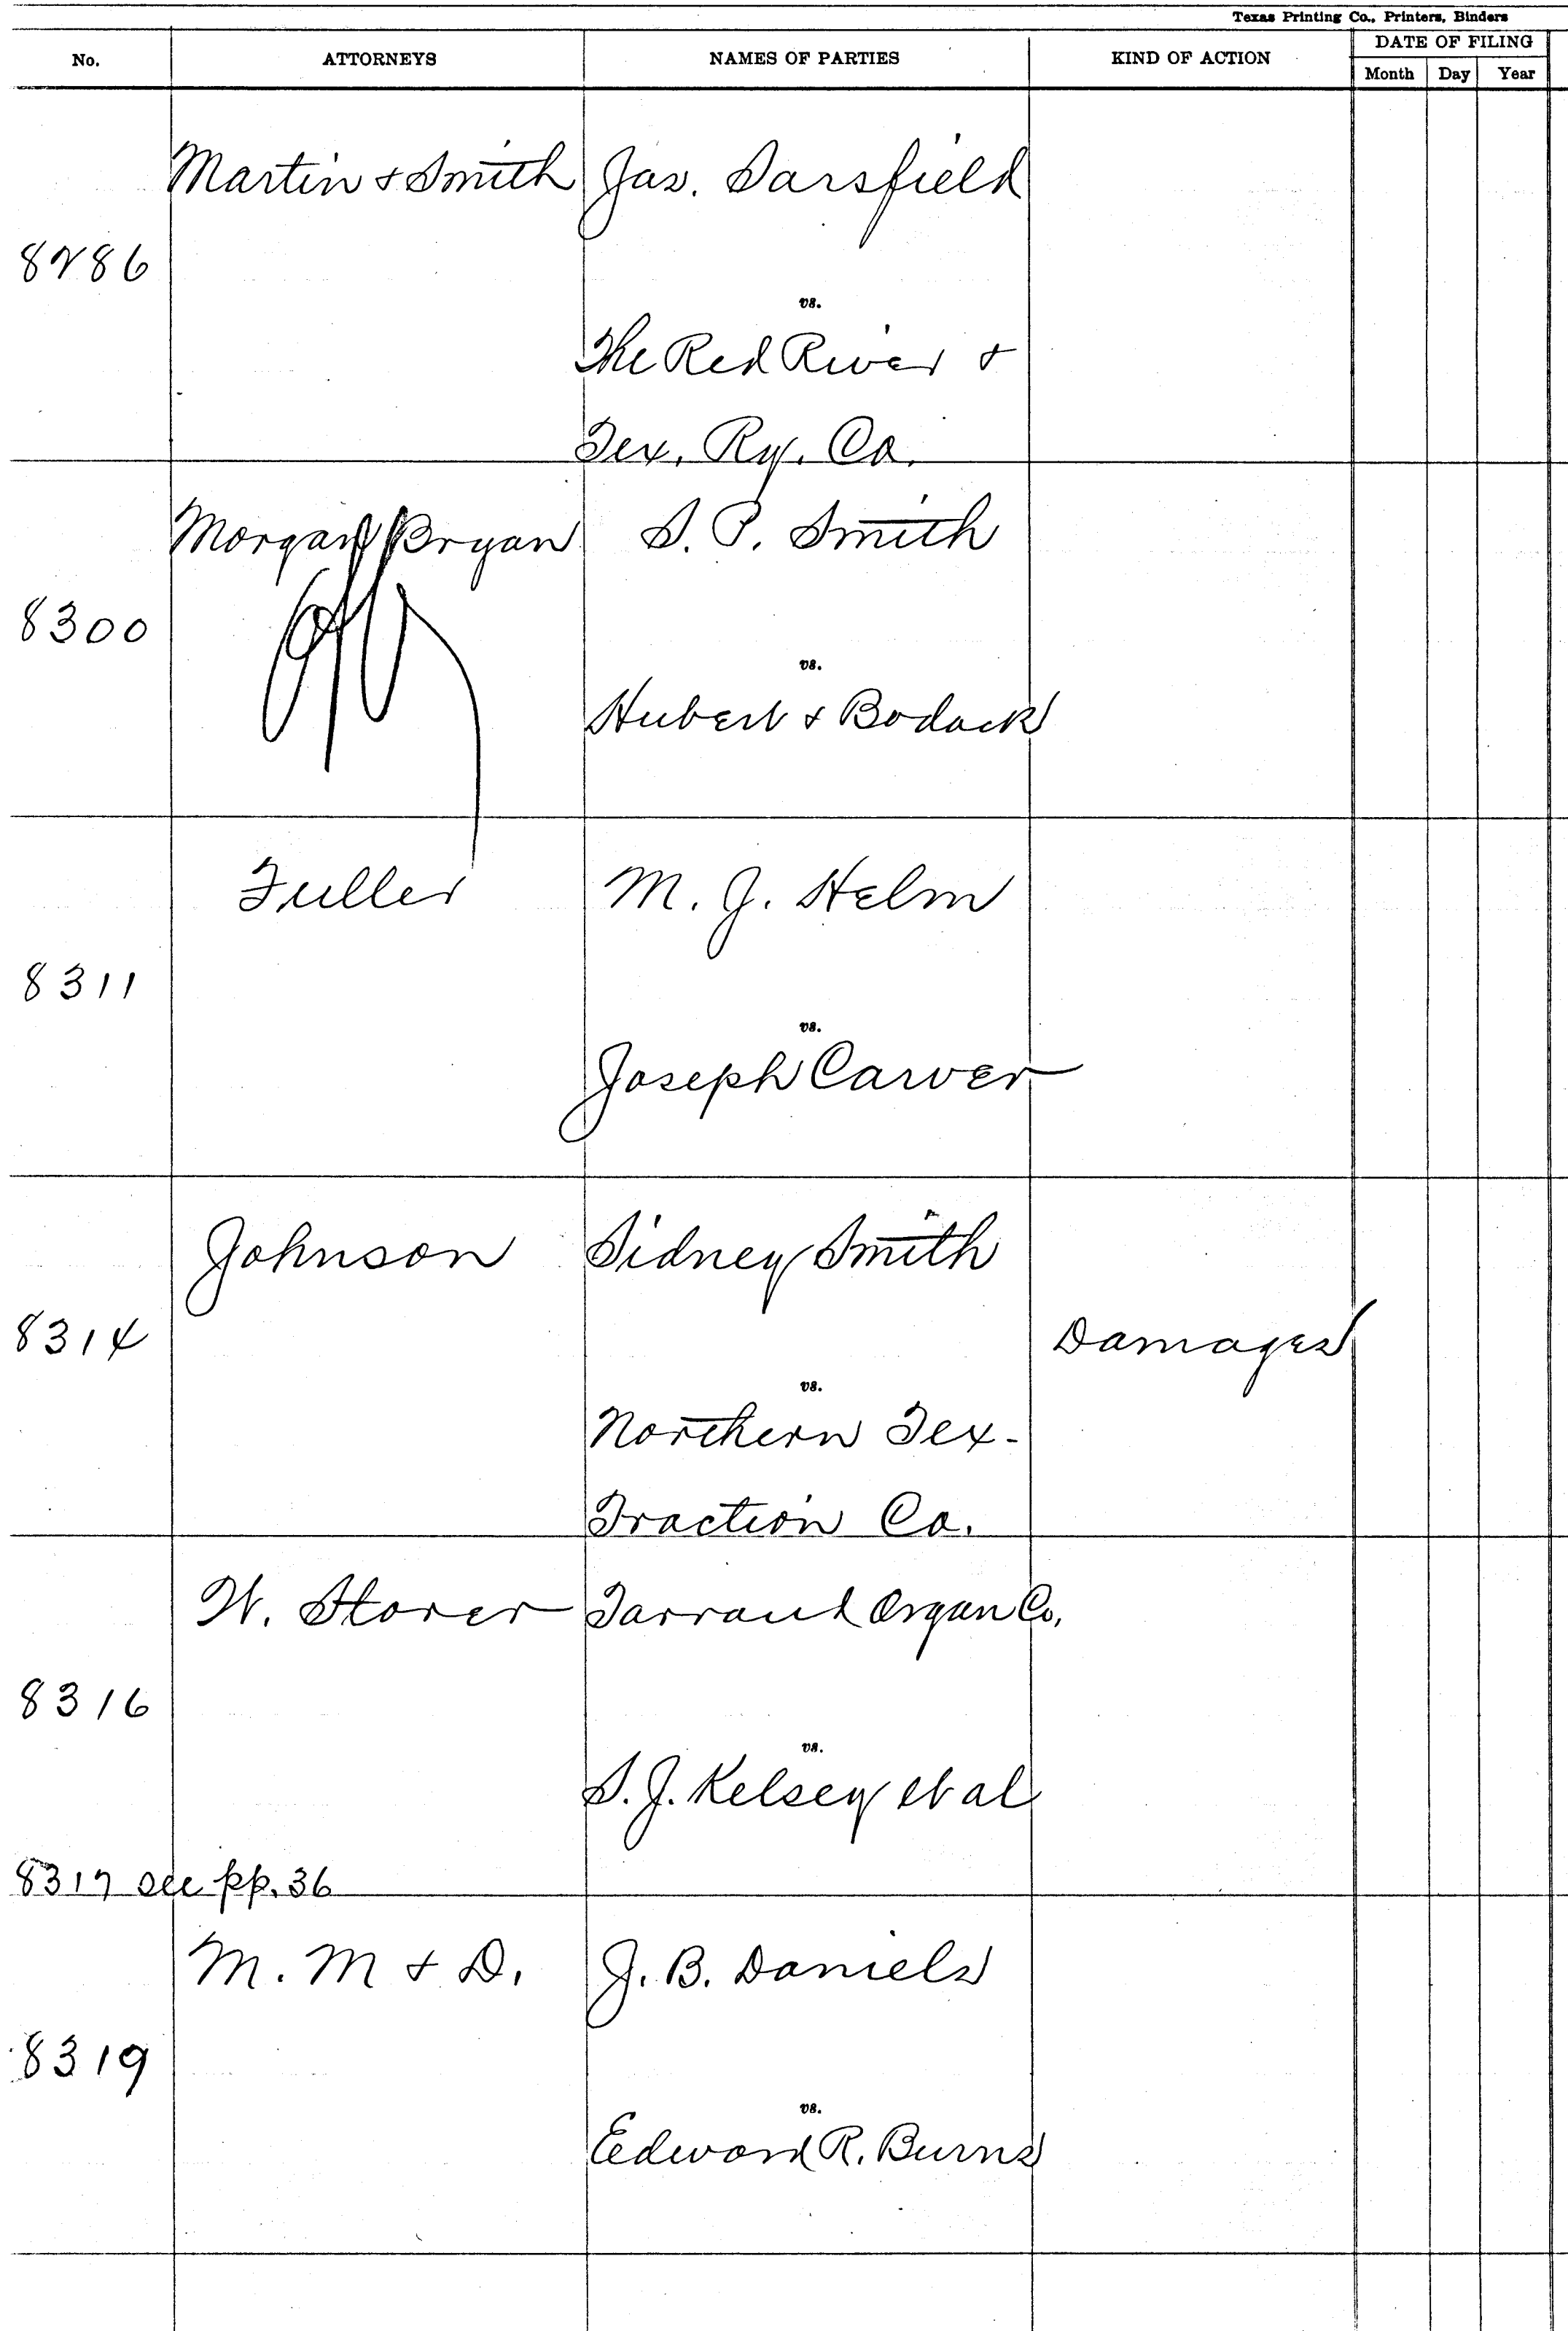 Texas Printing Co., Printers, Binders
No. ATTORNEYS NAMES OF PARTIES KIND OF ACTION DATE OF FILING
Month Day Year
Martin & Smith Jas. Sarsfield
8286
vs.
The Red River &
Tex. Ry. Co.
Morgan Bryan S. P. Smith
8300
vs.
Hubert & Bodock
Fuller M. J. Helm
8311
vs.
Joseph Carver
Johnson Sidney Smith
8314 Damages
vs.
Northern Tex-
Traction Co.
W. Storer Tarrant Organ Co.
8316
vs.
S. J. Kelsey et al
8317 see pp. 36
M. M & D. J. B. Daniels
8319
vs.
Edward R. Burns